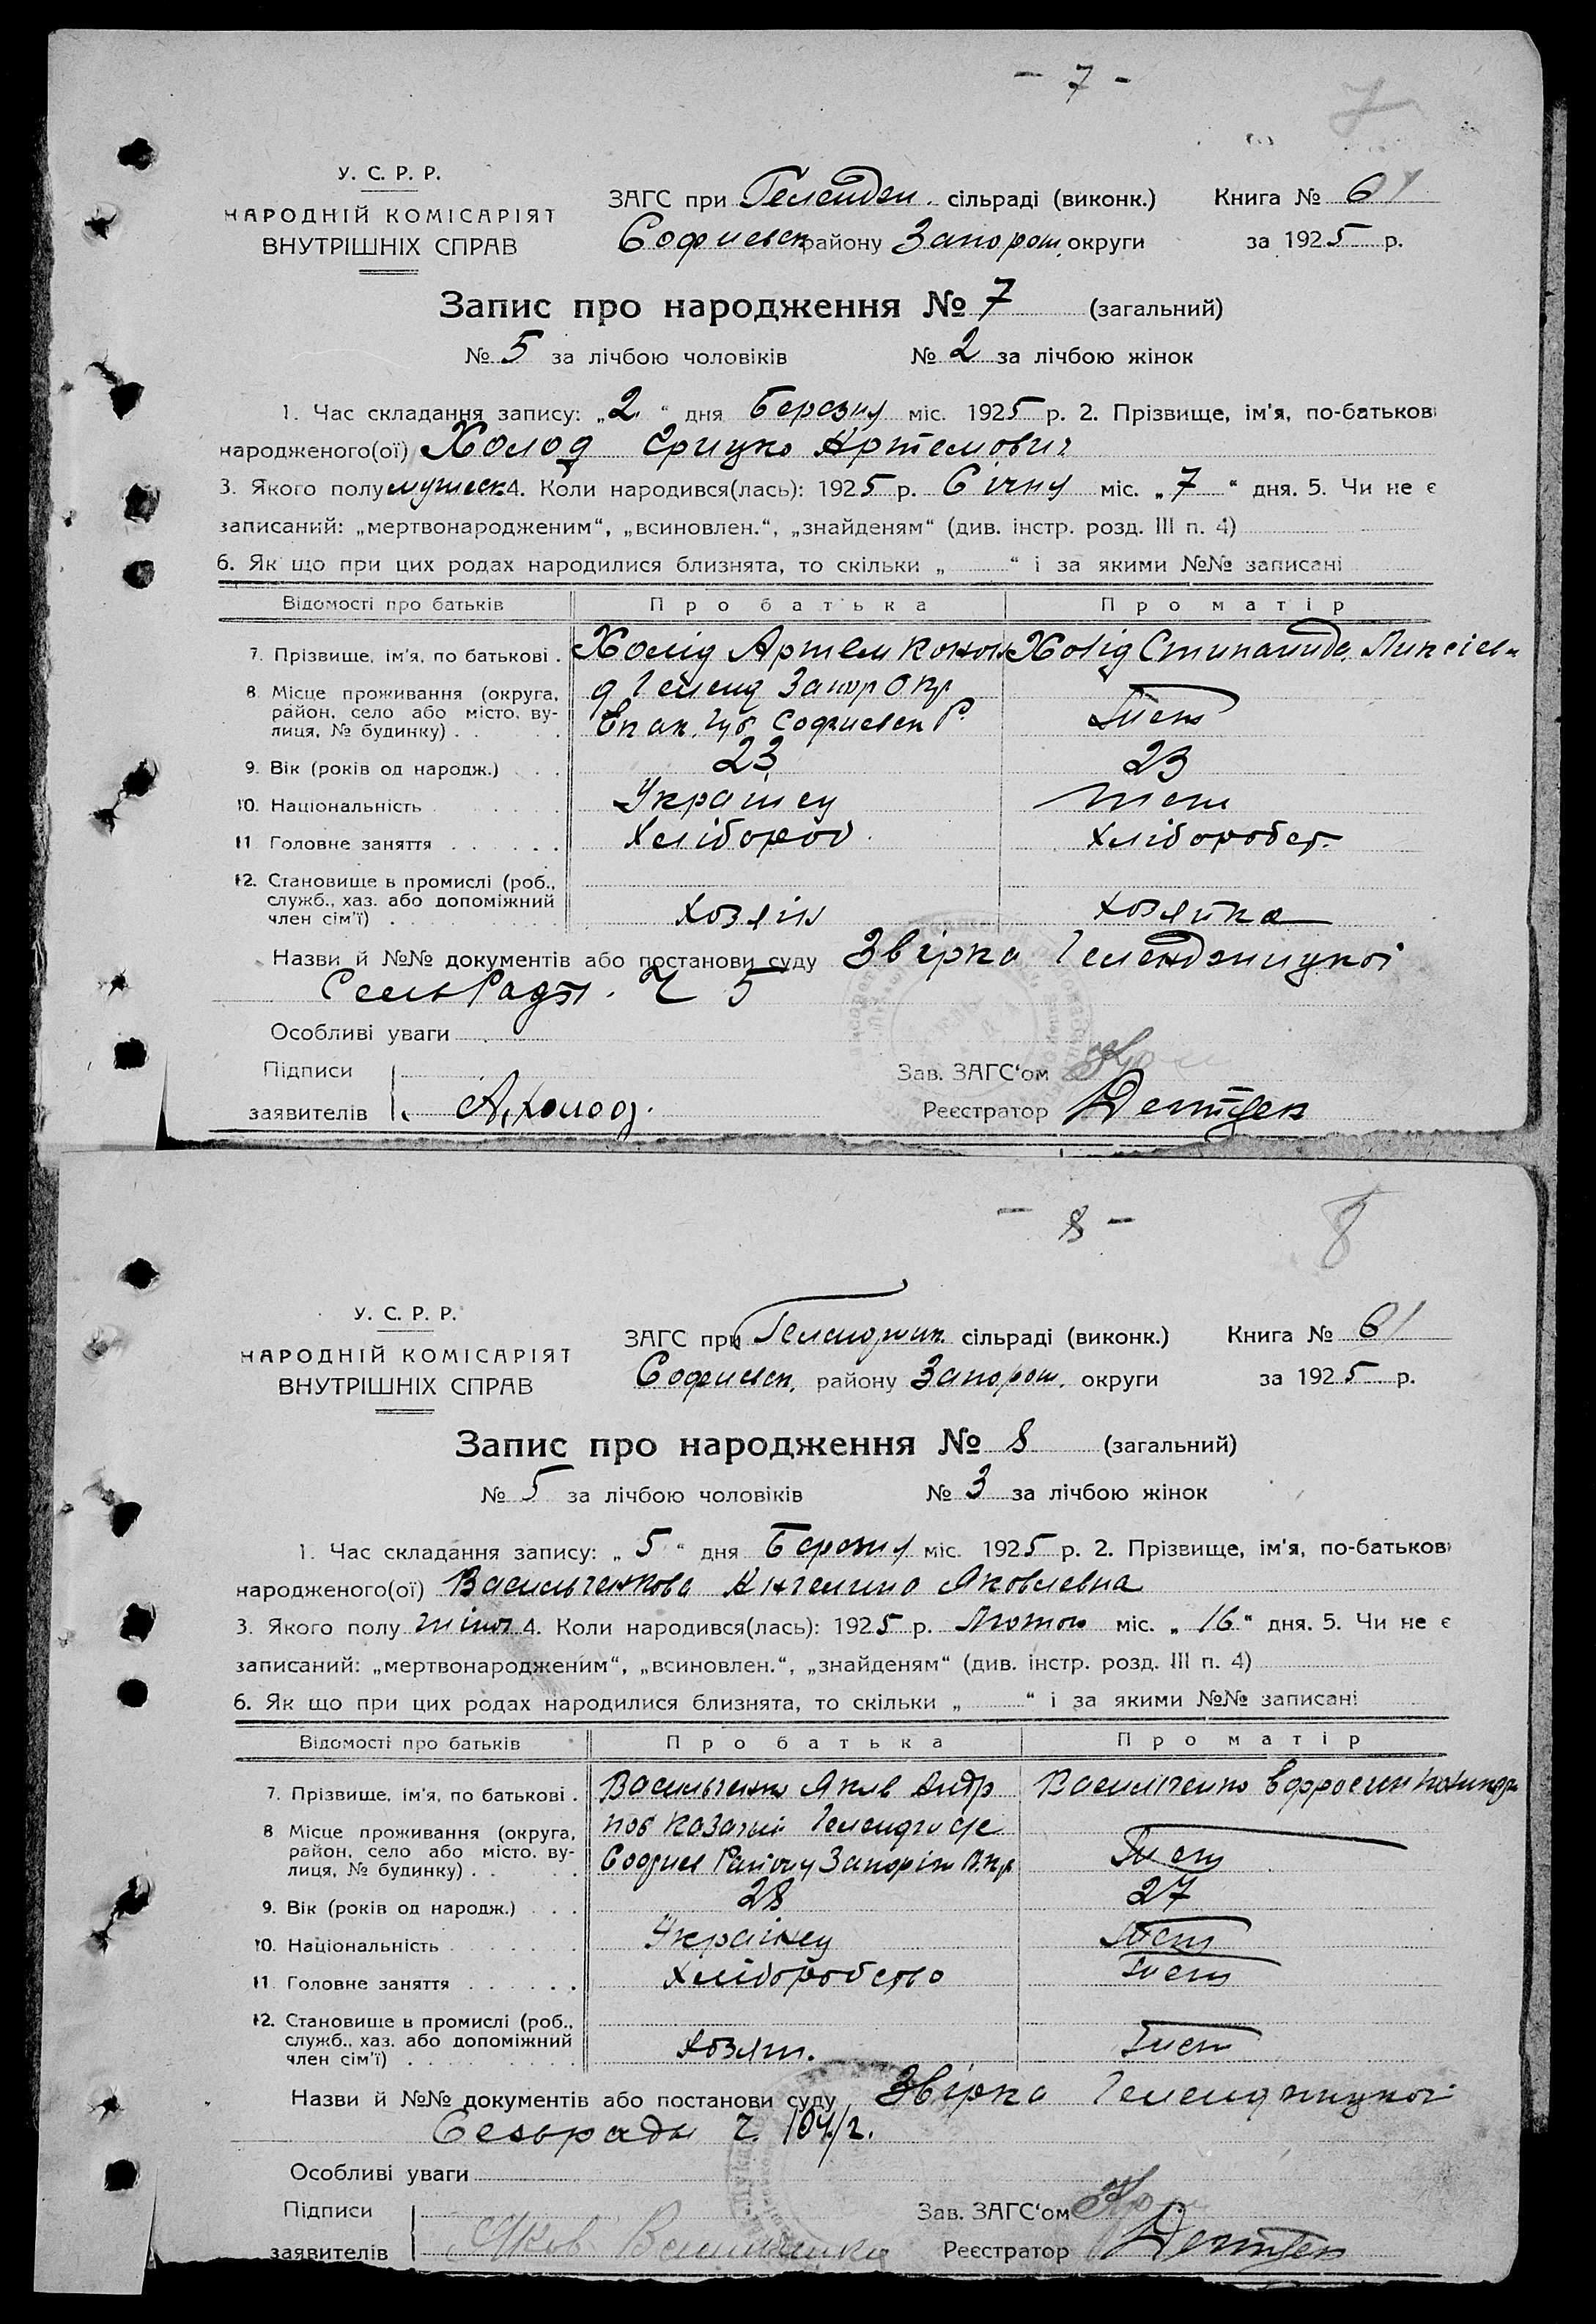 - 7 -
7
У. С. Р. Р.
НАРОДНІЙ КОМІСАРІЯТ
ВНУТРІШНІХ СПРАВ
ЗАГС при Гелендж. сільраді (виконк.) Книга № 61
Софиевск району Запорож. округи за 1925 р.
Запис про народження № 7 (загальний)
№ 5 за лічбою чоловіків № 2 за лічбою жінок
1. Час складання запису: „2“ дня Березня міс. 1925 р. 2. Прізвище, ім'я, по-батькові
народженого(ої) Холод Грицко Артемович
3. Якого полу мужеск. 4. Коли народився(лась): 1925 р. Січня міс. „7“ дня. 5. Чи не є
записаний: „мертвонародженим“, „всиновлен.“, „знайденям“ (див. інстр. розд. III п. 4)
6. Як що при цих родах народилися близнята, то скільки „ “ і за якими №№ записані
Відомості про батьків Про батька Про матір
7. Прізвище, ім'я, по батькові . Холід Артем Холід
8 Місце проживання (округа, Запор Окр
район, село або місто, вулиця, № будинку) . . Софиевск Р. Тиет
9. Вік (років од народж.) . . 23 23
10. Національність Українец
11 Головне заняття . . . . . Хлібороб Хлібороб
12. Становище в промислі (роб.,
служб., хаз. або допоміжний
член сім'ї) . Хозяін хозяйка
Назви й №№ документів або постанови суду Звірка Геленджицкоі
СельРади. Ч 5
Особливі уваги
Підписи
заявителів А. Холод.
Зав. ЗАГС'ом
Реєстратор
- 8 -
8
У. С. Р. Р.
НАРОДНІЙ КОМІСАРІЯТ
ВНУТРІШНІХ СПРАВ
ЗАГС при Геленджик. сільраді (виконк.) Книга № 61
Софиевск. району Запорож. округи за 1925 р.
Запис про народження № 8 (загальний)
№ 5 за лічбою чоловіків № 3 за лічбою жінок
1. Час складання запису: „5“ дня Березня міс. 1925 р. 2. Прізвище, ім'я, по-батькові
народженого(ої) Васильченкова Ангелина Яковлевна
3. Якого полу жіноч. 4. Коли народився(лась): 1925 р. Лютого міс. „16“ дня. 5. Чи не є
записаний: „мертвонародженим“, „всиновлен.“, „знайденям“ (див. інстр. розд. III п. 4)
6. Як що при цих родах народилися близнята, то скільки „ “ і за якими №№ записані
Відомості про батьків Про батька Про матір
7. Прізвище, ім'я, по батькові . Васильченко Яків Андр Васильченко
8 Місце проживання (округа,
район, село або місто, вулиця, № будинку) . . Софиев Району Запоріж Окр
9. Вік (років од народж.) . . . 28 27
10. Національність . . . . . . Українец
11 Головне заняття . . . . . Хліборобство
12. Становище в промислі (роб.,
служб., хаз. або допоміжний
член сім'ї) . . . . . . Хозяін.
Назви й №№ документів або постанови суду Звірка Геленджицкоі
Сельради Ч. 104/2.
Особливі уваги
Підписи
заявителів Яков Васильченко
Зав. ЗАГС'ом
Реєстратор